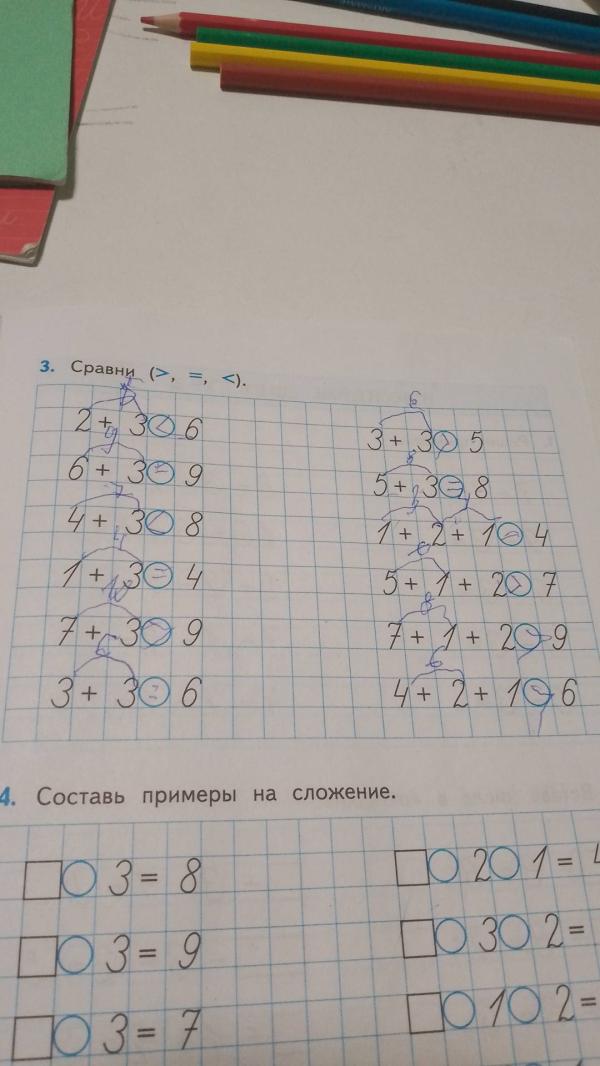 3. Сравни (>, =, <).
2 + 3 < 6
6 + 3 = 9
4 + 3 < 8
1 + 3 = 4
7 + 3 > 9
3 + 3 = 6
3 + 3 > 5
5 + 3 = 8
1 + 2 + 1 = 4
5 + 1 + 2 > 7
7 + 1 + 2 > 9
4 + 2 + 1 > 6
4. Составь примеры на сложение.
□○ 3 = 8
□○ 3 = 9
□○ 3 = 7
□○ 2○ 1 = 4
□○ 3○ 2 =
□○ 1○ 2 =